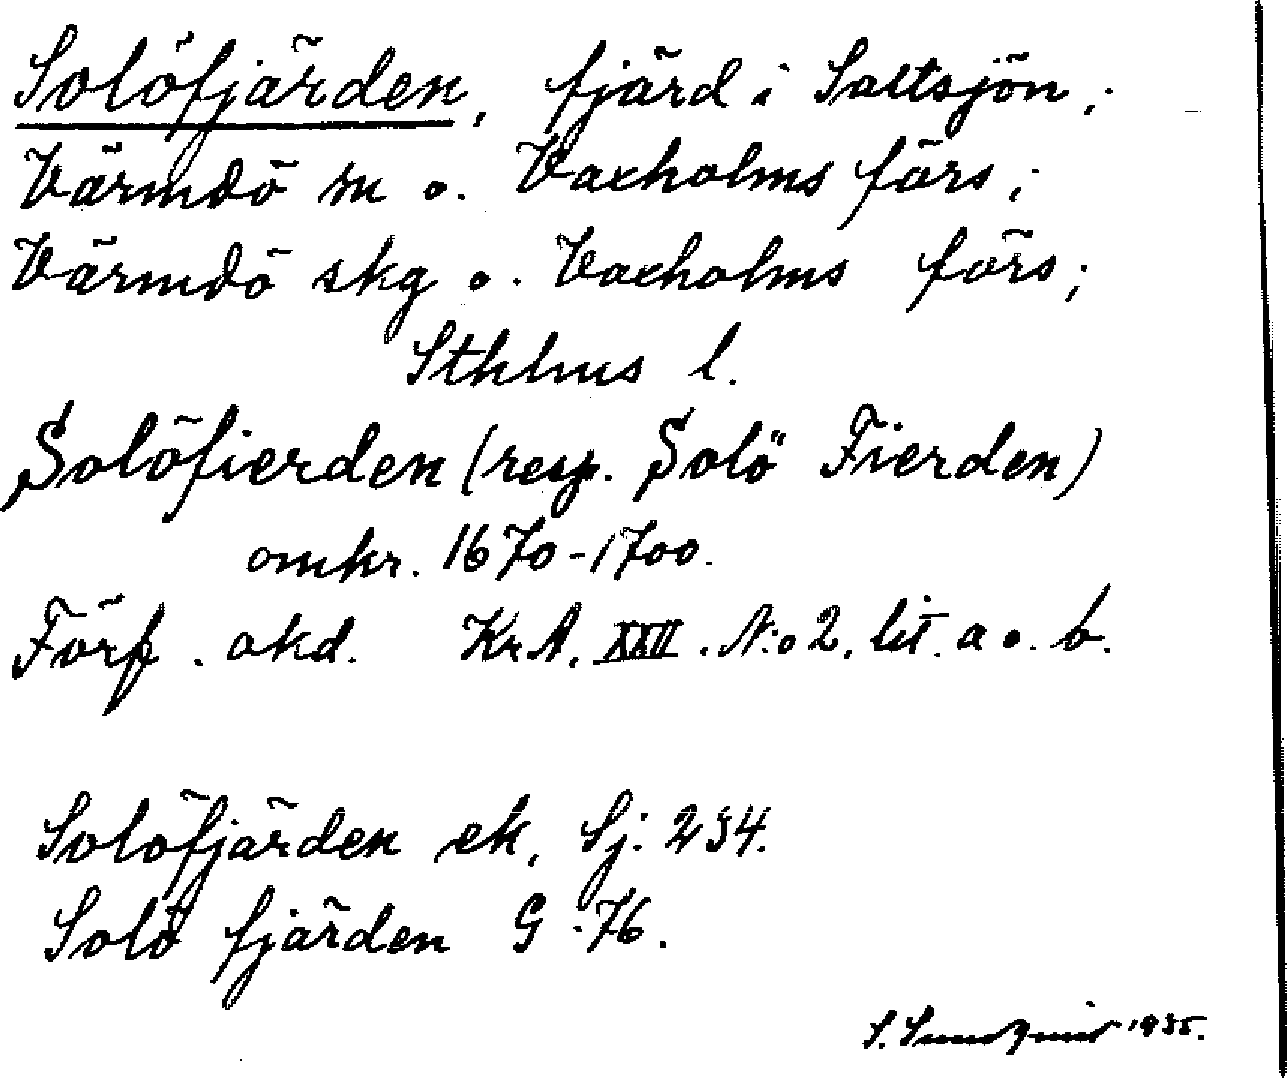 Solöfjärden, fjärd i Saltsjön;
Värmdö sn o. Vaxholms förs;
Värmdö skg o. Vaxholms förs;
Sthlms l.
Solöfierden (resp. Solö Fierden)
omkr. 1670-1700.
Förf. okd. KrA. XXII. N:o 2, lit. a o. b.
Solöfjärden ek, Sj: 234.
Solö fjärden G 76.
S. Sundqvist 1935.